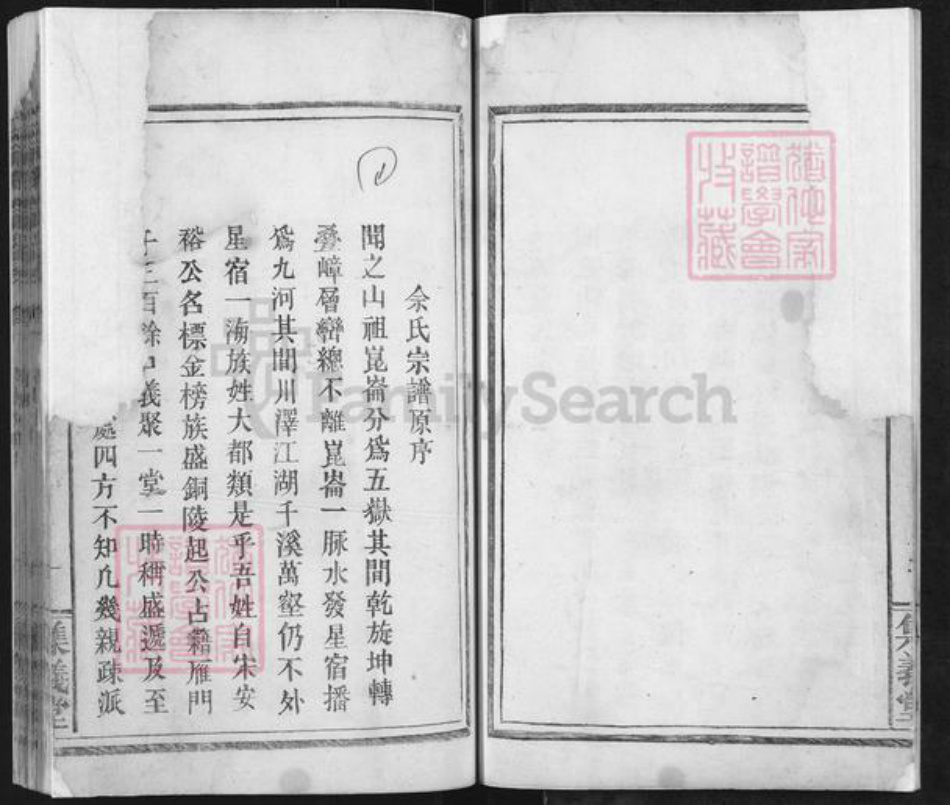 余氏宗譜原序
聞之山祖崑崙分爲五嶽其間乾旋坤轉
疊嶂層巒總不離崑崙一脉水發星宿播
爲九河其間川澤江湖千溪萬壑仍不外
星宿一海族姓大都類是乎吾姓自宋安
裕公名標金榜族盛銅陵起公占籍雁門
千三百餘口義聚一堂一時稱盛遞及至
處四方不知凡幾親疎派
集義堂
集義堂
譜學會
收藏
FamilySearch